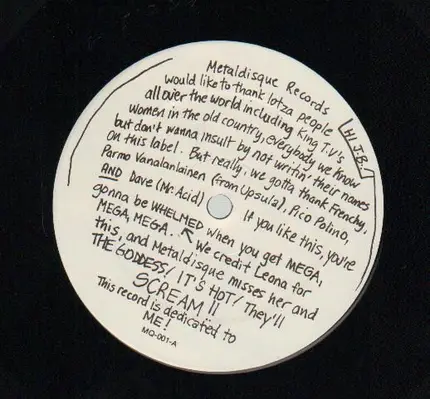 Metaldisque Records
would like to thank lotza people
all over the world including King T.V's
women in the old country, everybody we know
but don't wanna insult by not writin' their names
on this label. But really, we gotta thank Frenchy,
Parmo Vanalanlainen (from Upsula), Pico Polino,
AND Dave (Mr. Acid) If you like this, you're
gonna be WHELMED when you get MEGA,
MEGA, MEGA. We credit Leona for
this, and Metaldisque misses her and
THE GODDESS/ IT'S HOT/ They'll
SCREAM!!
This record is dedicated to
ME!
MO-001-A
HI J.B.